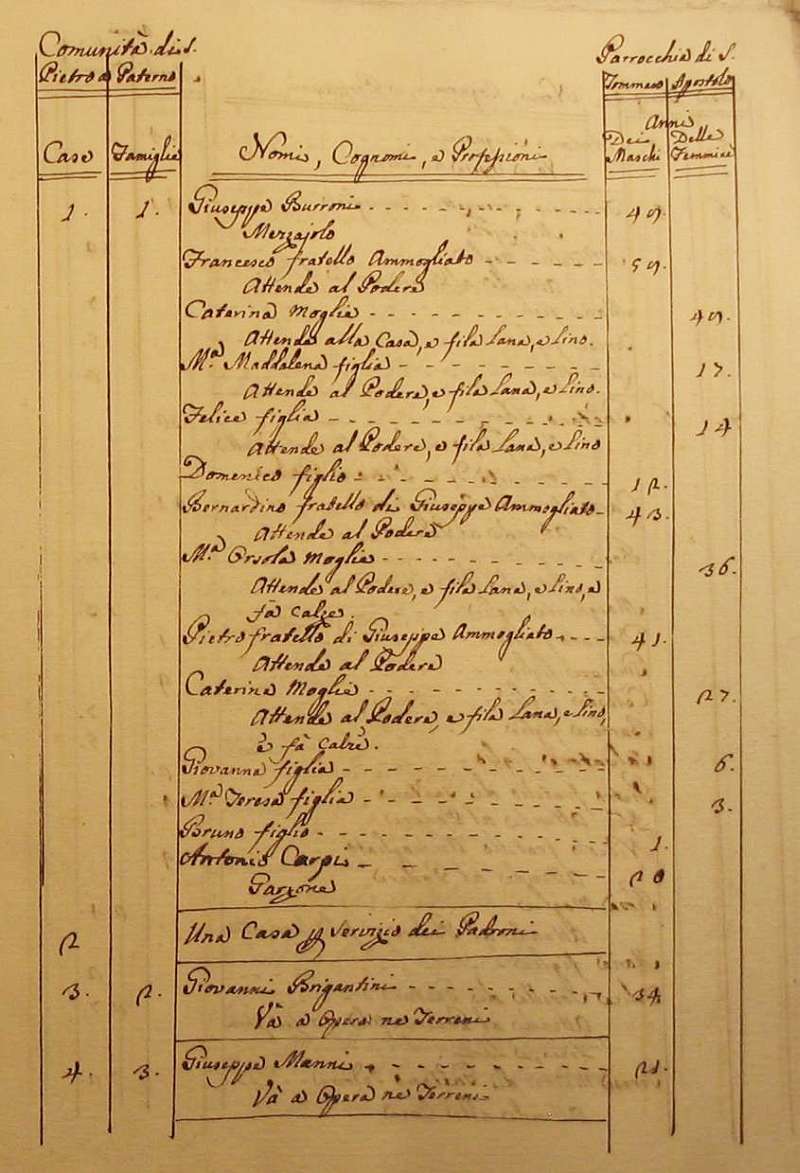 Comunità di S.
Pietro a Paterno
Parrocchia di S.
Tommaso Apostolo
Case Famiglie Nomi, Cognomi, e Professioni Anni
Dei Maschi Delle Femmine
1. 1. Giuseppe Burroni 49.
Mezzajolo
Francesco fratello Ammogliato 59.
Attende al Podere
Caterina Moglie 49.
Attende alla Casa, e fila Lana, e Lino.
M.a Maddalena figlia 17.
Attende al Podere, e fila Lana, e Lino.
Felice figlia 14
Attende al Podere, e fila Lana, e Lino
Domenico figlio 12.
Bernardino fratello di Giuseppe Ammogliato 43.
Attende al Podere
M.a Orsola Moglie 36.
Attende al Podere, e fila Lana, e Lino, e
fà Calze.
Pietro fratello di Giuseppe Ammogliato 41.
Attende al Podere
Caterina Moglie 27.
Attende al Podere, e fila Lana, e Lino,
e fà Calze.
Giovanna figlia 6.
M.a Teresa figlia 3.
Bruno figlio 1.
Antonio Carpi 20
Garzone
2 Una Casa p servizio dei Padroni
3. 2. Giovanni Brigantini 34
Và a Opera ne Terreni
4. 3. Giuseppe Manni 21.
Và a Opera ne Terreni